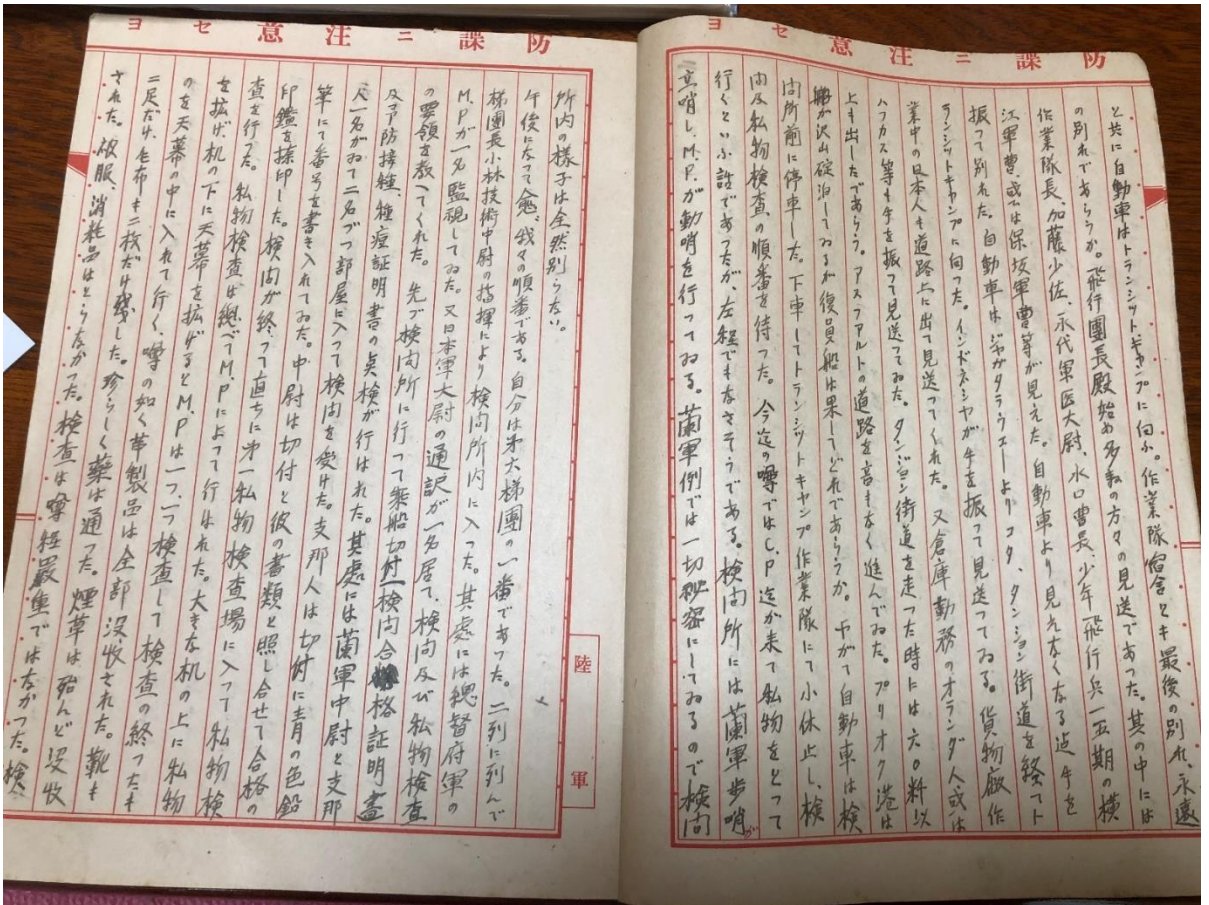 防諜ニ注意セヨ
と共に自動車はトランシットキャンプに向ふ。作業隊宿舎とも最後の別れ、永遠
の別れであらうか。飛行團長殿始め多数の方々の見送であった。其の中には
作業隊長、加藤少佐、永代軍医大尉、水口曹長、少年飛行兵一五期の横
江軍曹、或は保坂軍曹等が見えた。自動車より見えなくなる迠手を
振って別れた。自動車はジャガタラウエーよりコタ、タンジョン街道を経てト
ランシットキャンプに向った。インドネシヤが手を振って見送ってゐる。貨物廠作
業中の日本人も道路上に出て見送ってくれた。又倉庫勤務のオランダ人或は
ハフカス等も手を振って見送ってゐた。タンジョン街道を走った時には六〇粁以
上も出したであらう。アスファルトの道路を音もなく進んでゐた。プリオク港は
船が沢山碇泊してゐるが復員船は果してどれであらうか。やがて自動車は検
問所前に停車した。下車してトランシットキャンプ作業隊にて小休止し、検
問及私物検査の順番を待った。今迠の噂ではC.P迠が来て私物をとって
行くといふ話であったが、左程でもなささうである。検問所には蘭軍歩哨が
立哨し、M.P.が動哨を行ってゐる。蘭軍側では一切秘密にしてゐるので検問
防諜ニ注意セヨ
所内の様子は全然別らない。
午後になって愈々我々の順番である。自分は第六梯團の一番であった。二列に列んで
梯團長小林技術中尉の指揮により検問所内に入った。其処には總督府軍の
M.Pが一名監視してゐた。又日本軍大尉の通訳が一名居て、検問及び私物検査
の要領を教へてくれた。先づ検問所に行って乗船切付、検問合格証明書
及予防接種、種痘証明書の点検が行はれた。其處には蘭軍中尉と支那
人一名がゐて二名づつ部屋に入って検問を受けた。支那人は切付に青の色鉛
筆にて番号を書き入れてゐた。中尉は切付と彼の書類と照し合せて合格の
印鑑を捺印した。検問が終って直ちに第一私物検査場に入って私物検
査を行った。私物検査は總べてM.Pによって行はれた。大きな机の上に私物
を拡げ机の下に天幕を拡げるとM.P.は一つ、一つ検査して検査の終ったも
のを天幕の中に入れて行く。噂の如く革製品は全部没收された。靴も
二足だけ、毛布も二枚だけ残した。珍らしく藥は通った。煙草は殆んど没收
された。被服、消耗品はとらなかった。検査は噂程嚴重ではなかった。検
陸軍